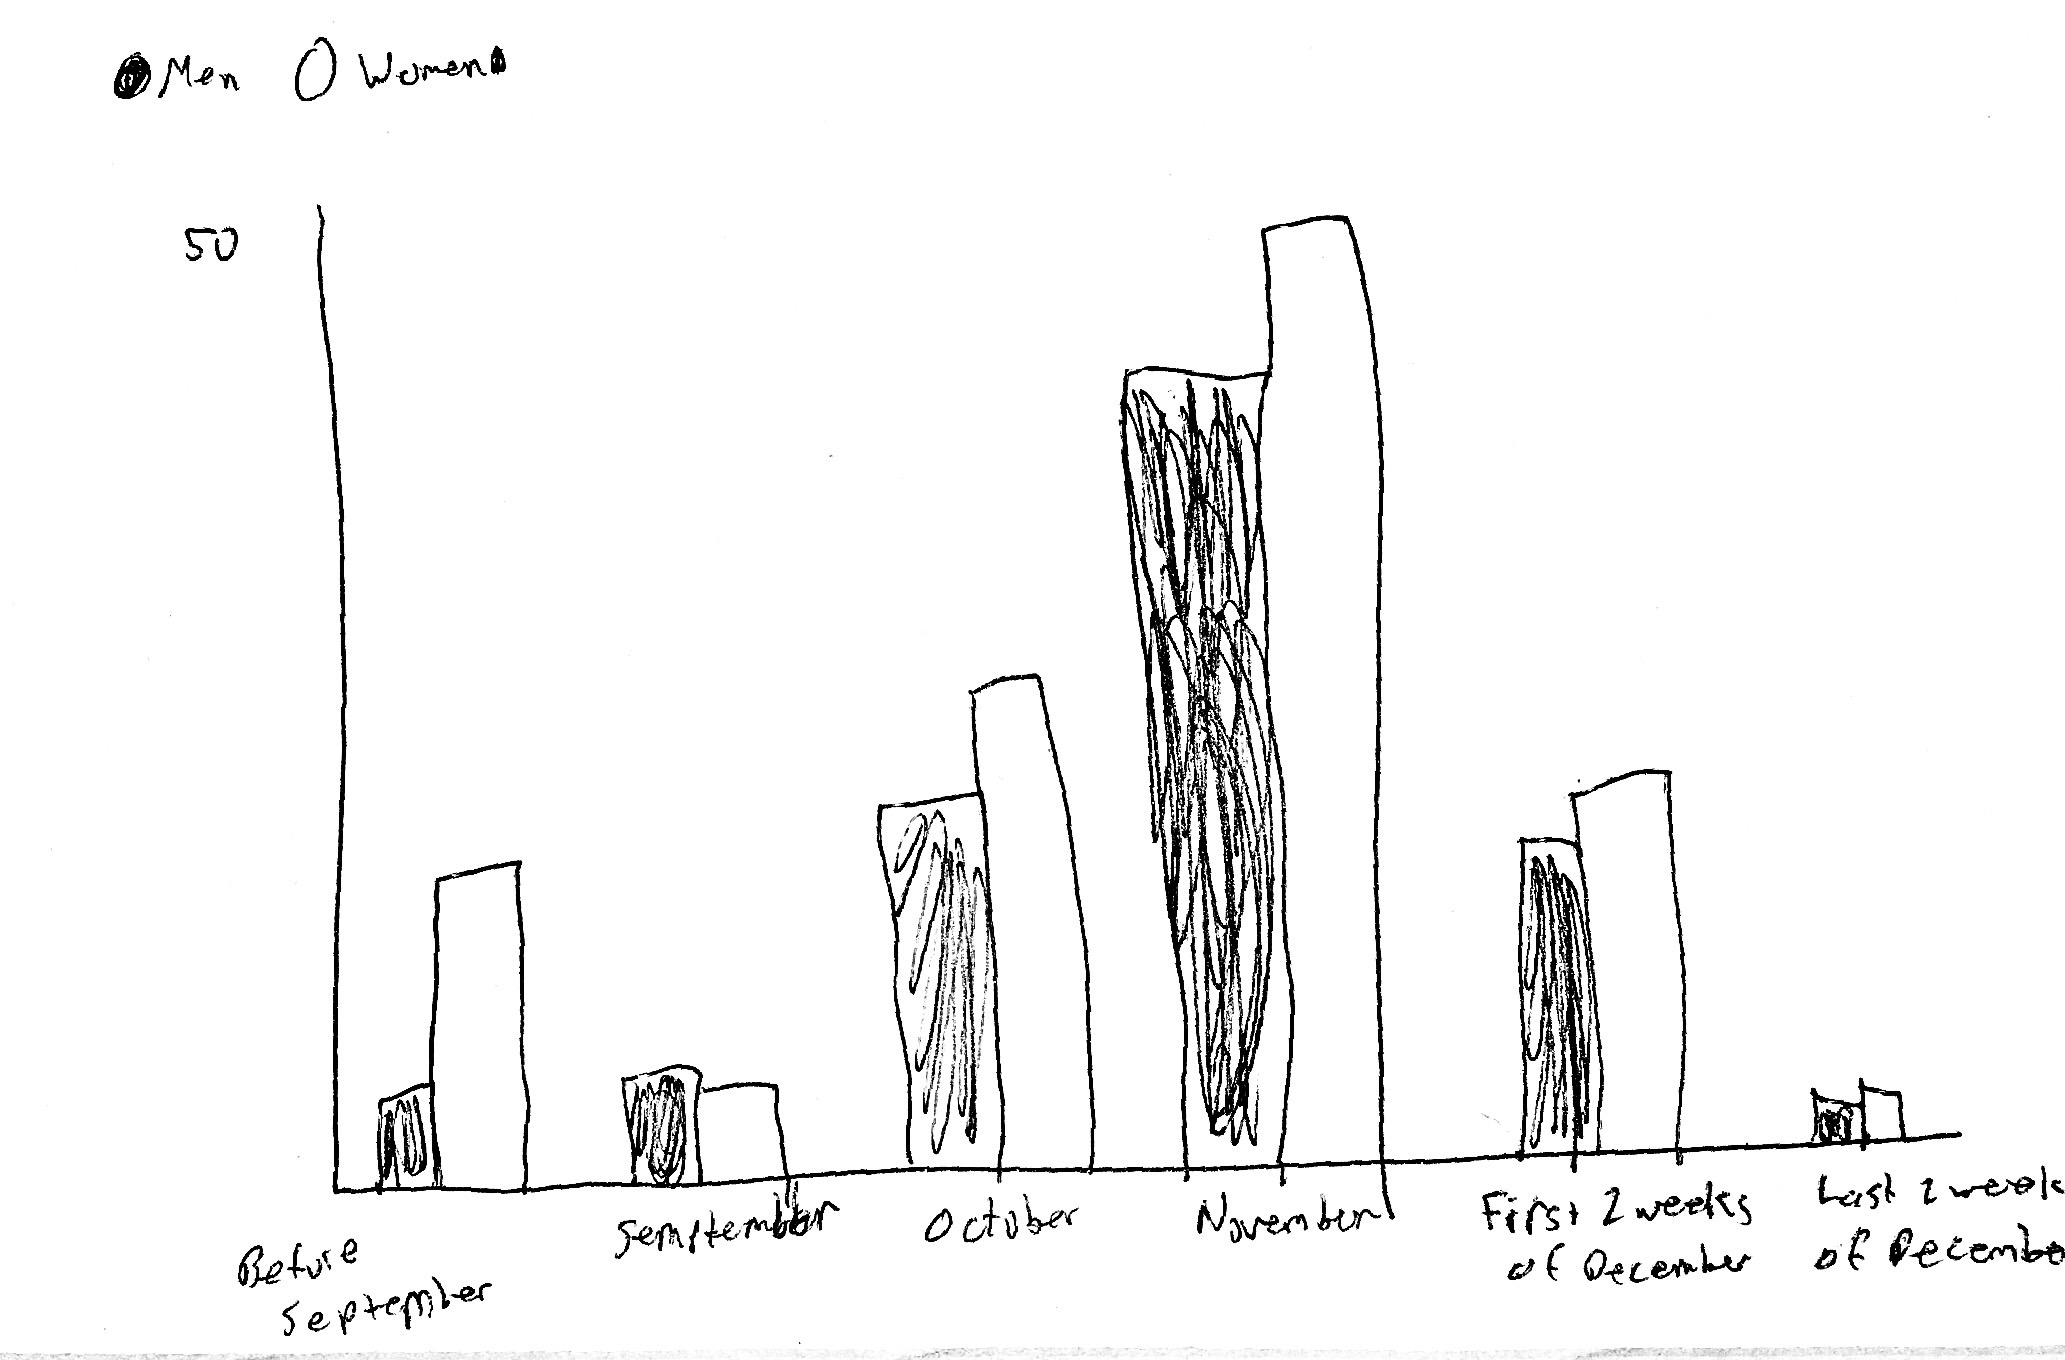 Men Women
50
Before
September
Semptember
October
November
First 2 weeks
of December
Last 2 week
of Decembe